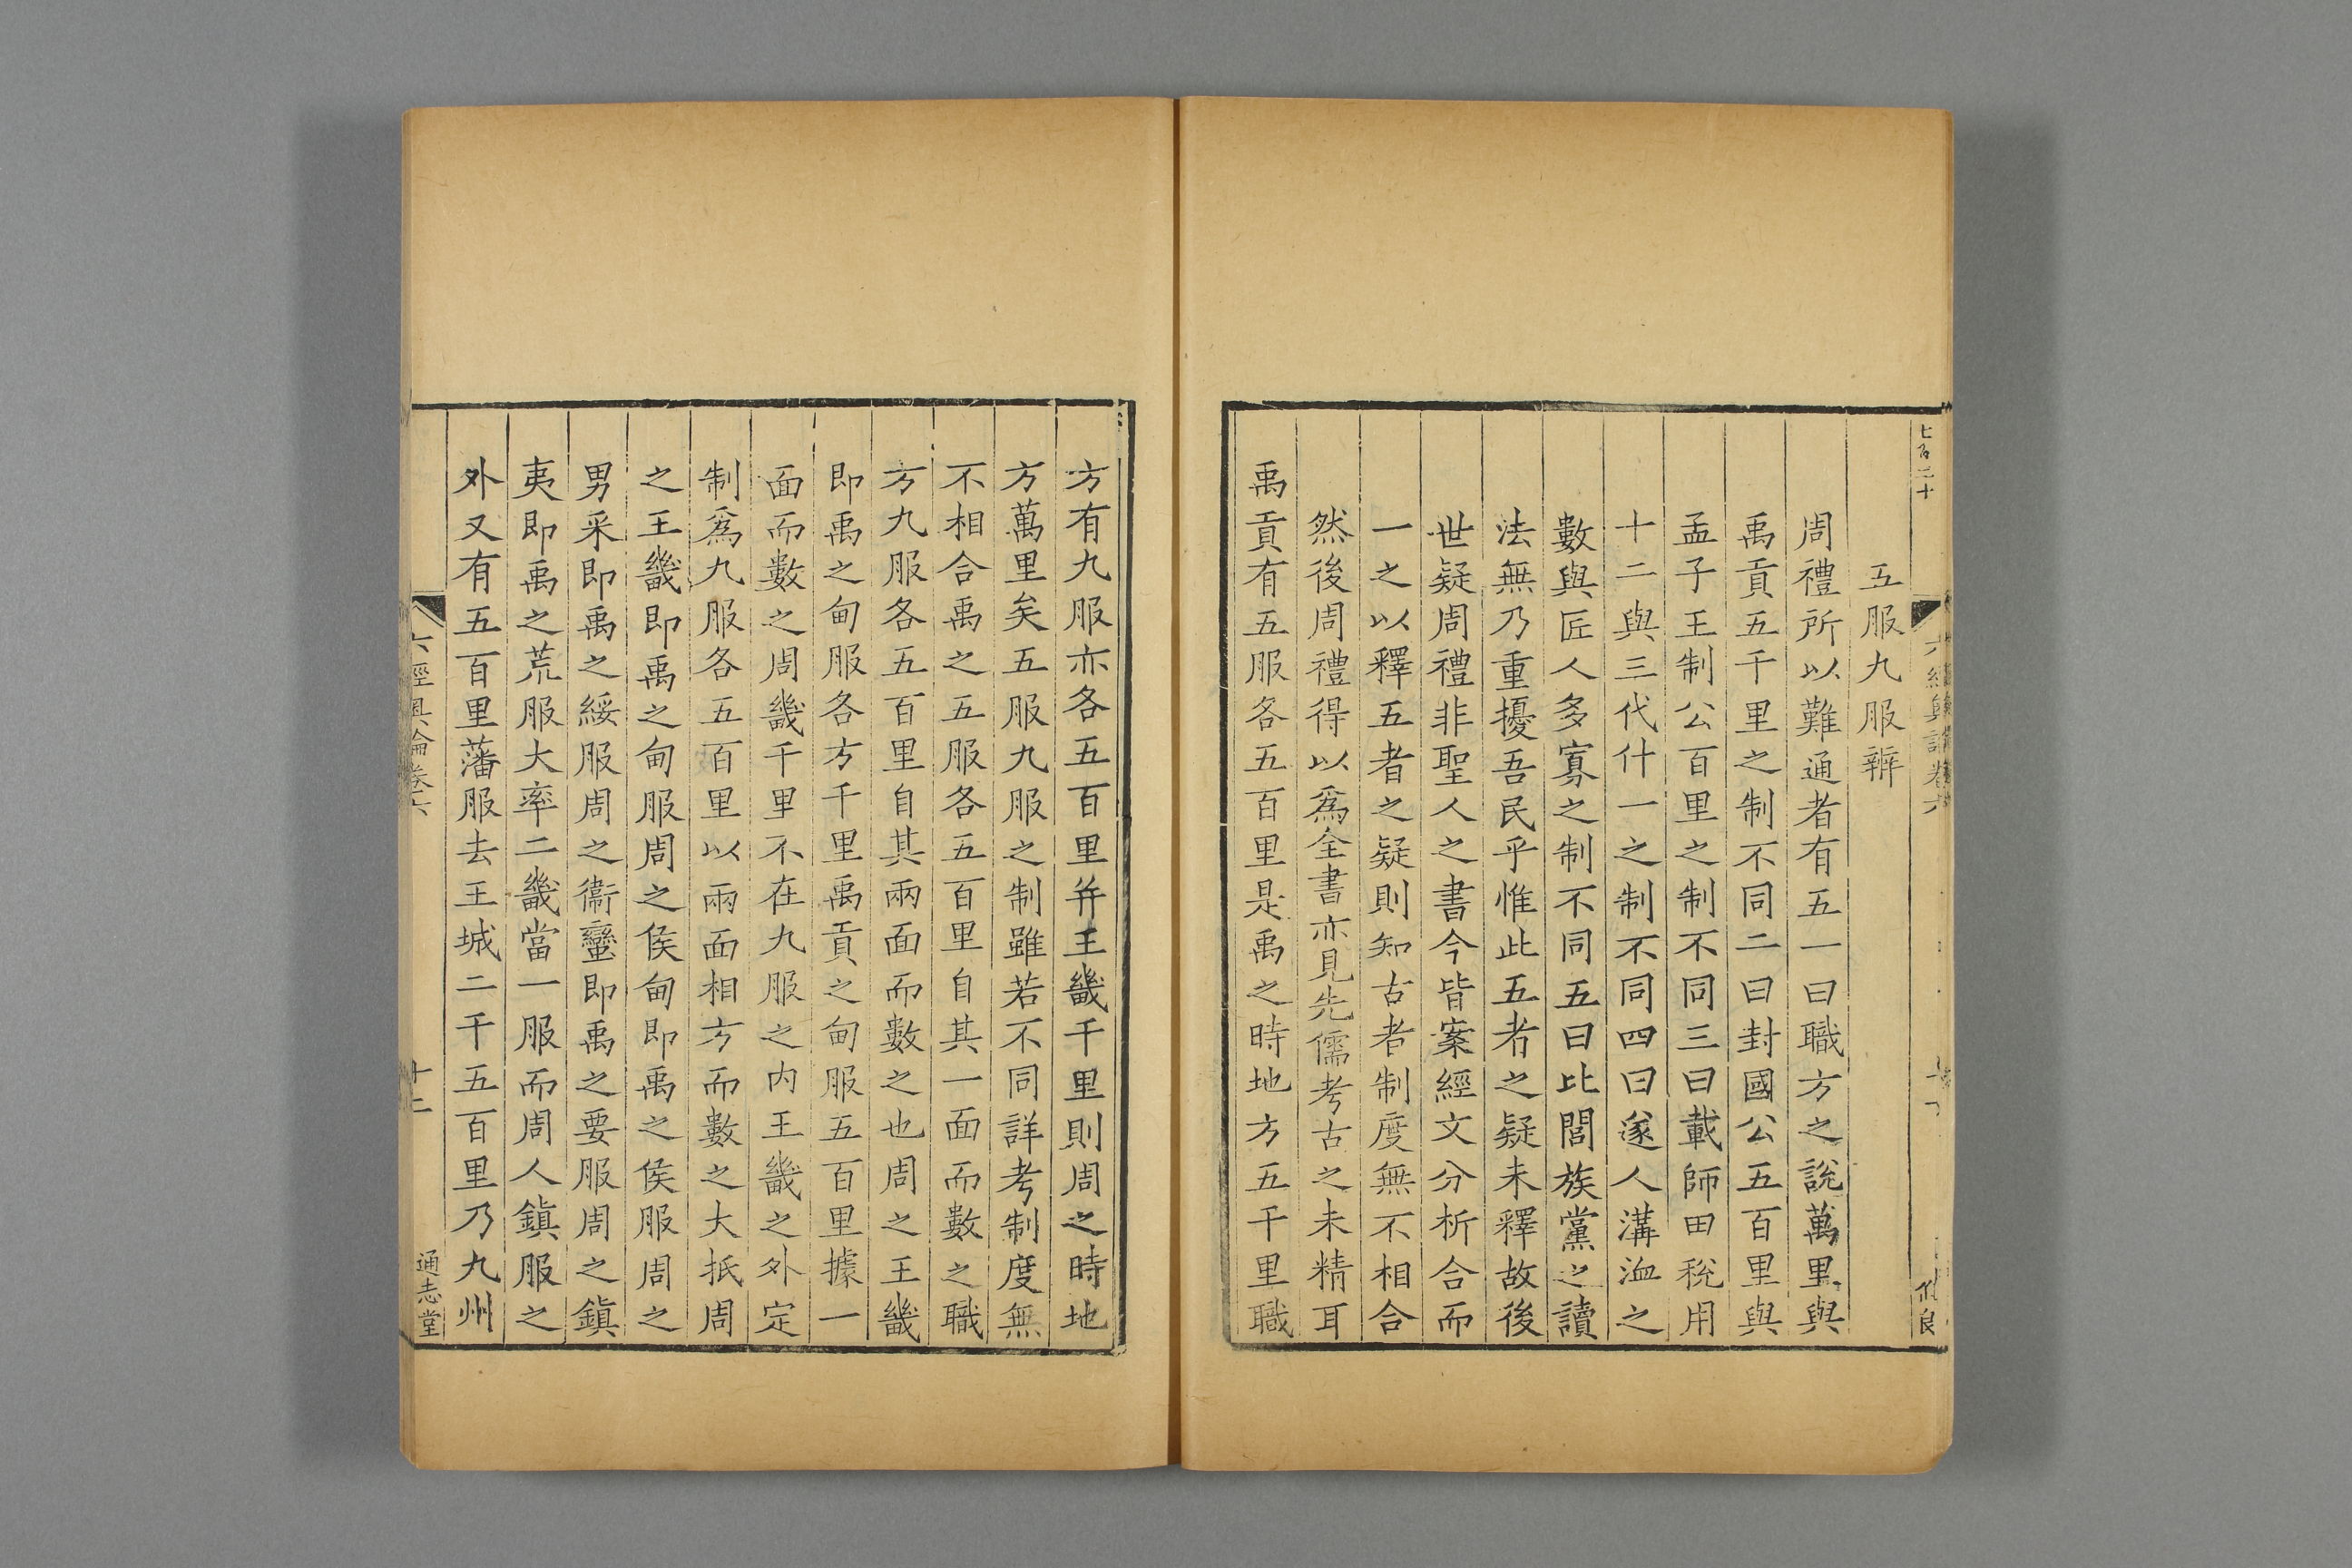 七百二十
五服九服辨
周禮所以難通者有五一曰職方之說萬里與
禹貢五千里之制不同二曰封國公五百里與
孟子王制公百里之制不同三曰載師田稅用
十二與三代什一之制不同四曰遂人溝洫之
數與匠人多寡之制不同五曰比閭族黨之讀
法無乃重擾吾民乎惟此五者之疑未釋故後
世疑周禮非聖人之書今皆案經文分析合而
一之以釋五者之疑則知古者制度無不相合
然後周禮得以爲全書亦見先儒考古之未精耳
禹貢有五服各五百里是禹之時地方五千里職
方有九服亦各五百里并王畿千里則周之時地
方萬里矣五服九服之制雖若不同詳考制度無
不相合禹之五服各五百里自其一面而數之職
方九服各五百里自其兩面而數之也周之王畿
即禹之甸服各方千里禹貢之甸服五百里據一
面而數之周畿千里不在九服之內王畿之外定
制爲九服各五百里以兩面相方而數之大抵周
之王畿即禹之甸服周之侯甸即禹之侯服周之
男采即禹之綏服周之衞蠻即禹之要服周之鎭
夷即禹之荒服大率二畿當一服而周人鎭服之
外又有五百里藩服去王城二千五百里乃九州
六經奧論卷六
十二
通志堂